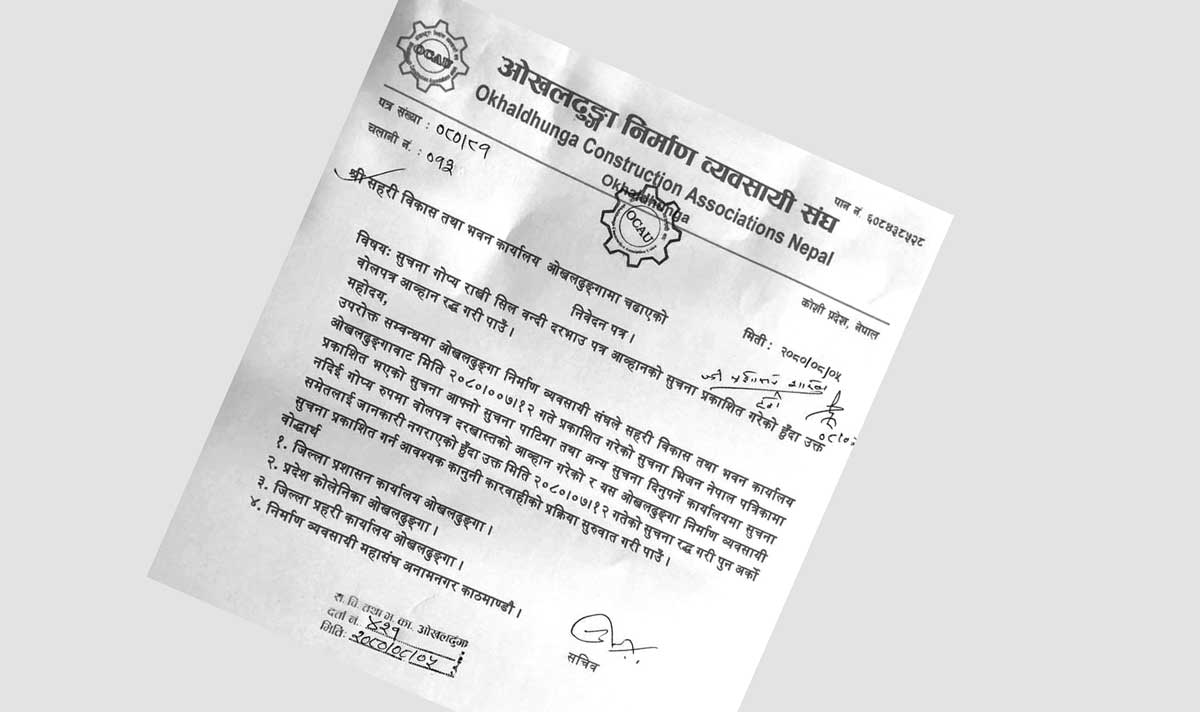 OCAU
ओखलढुङ्गा निर्माण व्यवसायी संघ
Okhaldhunga Construction Associations Nepal
Okhaldhunga
OCAU
पत्र संख्या : ०८०/८१
पान नं. ६०८४३८५२८
चलानी नं. : ०१३
कोशी प्रदेश, नेपाल
मिती : २०८०/०८/०५
श्री सहरी विकास तथा भवन कार्यालय ओखलढुङ्गामा चढाएको
निवेदन पत्र ।
विषय: सुचना गोप्य राखी सिल वन्दी दरभाउ पत्र आव्हानको सुचना प्रकाशित गरेको हुँदा उक्त
वोलपत्र आव्हान रद्ध गरी पाउँ ।
महोदय,
उपरोक्त सम्वन्धमा ओखलढुङ्गा निर्माण व्यवसायी संघले सहरी विकास तथा भवन कार्यालय
ओखलढुङ्गावाट मिति २०८०।००७।१२ गते प्रकाशित गरेको सुचना भिजन नेपाल पत्रिकामा
प्रकाशित भएको सुचना आफ्नो सुचना पाटिमा तथा अन्य सुचना दिनुपर्ने कार्यालयमा सुचना
नदिई गोप्य रुपमा वोलपत्र दरखास्तको आव्हान गरेको र यस ओखलढुङ्गा निर्माण व्यवसायी
समेतलाई जानकारी नगराएको हुँदा उक्त मिति २०८०।०७।१२ गतेको सुचना रद्ध गरी पुन अर्को
सुचना प्रकाशित गर्न आवश्यक कानुनी कारवाहीको प्रक्रिया सुरुवात गरी पाउँ ।
वोद्धार्थ
१. जिल्ला प्रशासन कार्यालय ओखलढुङ्गा ।
२. प्रदेश कोलेनिका ओखलढुङ्गा ।
३. जिल्ला प्रहरी कार्यालय ओखलढुङ्गा ।
४. निर्माण व्यवसायी महासंघ अनामनगर काठमाण्डौ ।
स. वि. तथा भ. का. ओखलढुंगा
दर्ता नं. ४२१
मिति: २०८०/०८/०५
सचिव